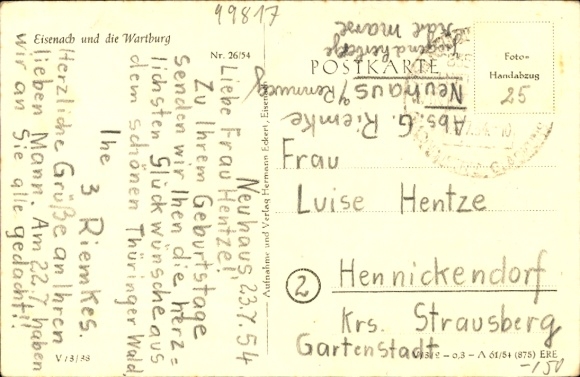 99817
Eisenach und die Wartburg
Nr. 26/54
Neuhaus 23.7.54
Liebe Frau Hentze!
Zu Ihrem Geburtstage
senden wir Ihen die herz=
lichsten Glückwünsche aus
dem schönen Thüringer Wald
Ihe
3 Riemkes.
Herzliche Grüße an Ihren
lieben Mann. Am 22.7. haben
wir an Sie alle gedacht!!
V/3/38
Aufnahme und Verlag Hermann Eckert, Eisenach
POSTKARTE
Abs. G. Riemke
Neuhaus a/Rennweg
Jugendherberge
Foto-
Handabzug
25
Frau
Luise Hentze
2 Hennickendorf
Krs. Strausberg
Gartenstadt
A 61/54 (878) ERE
-150